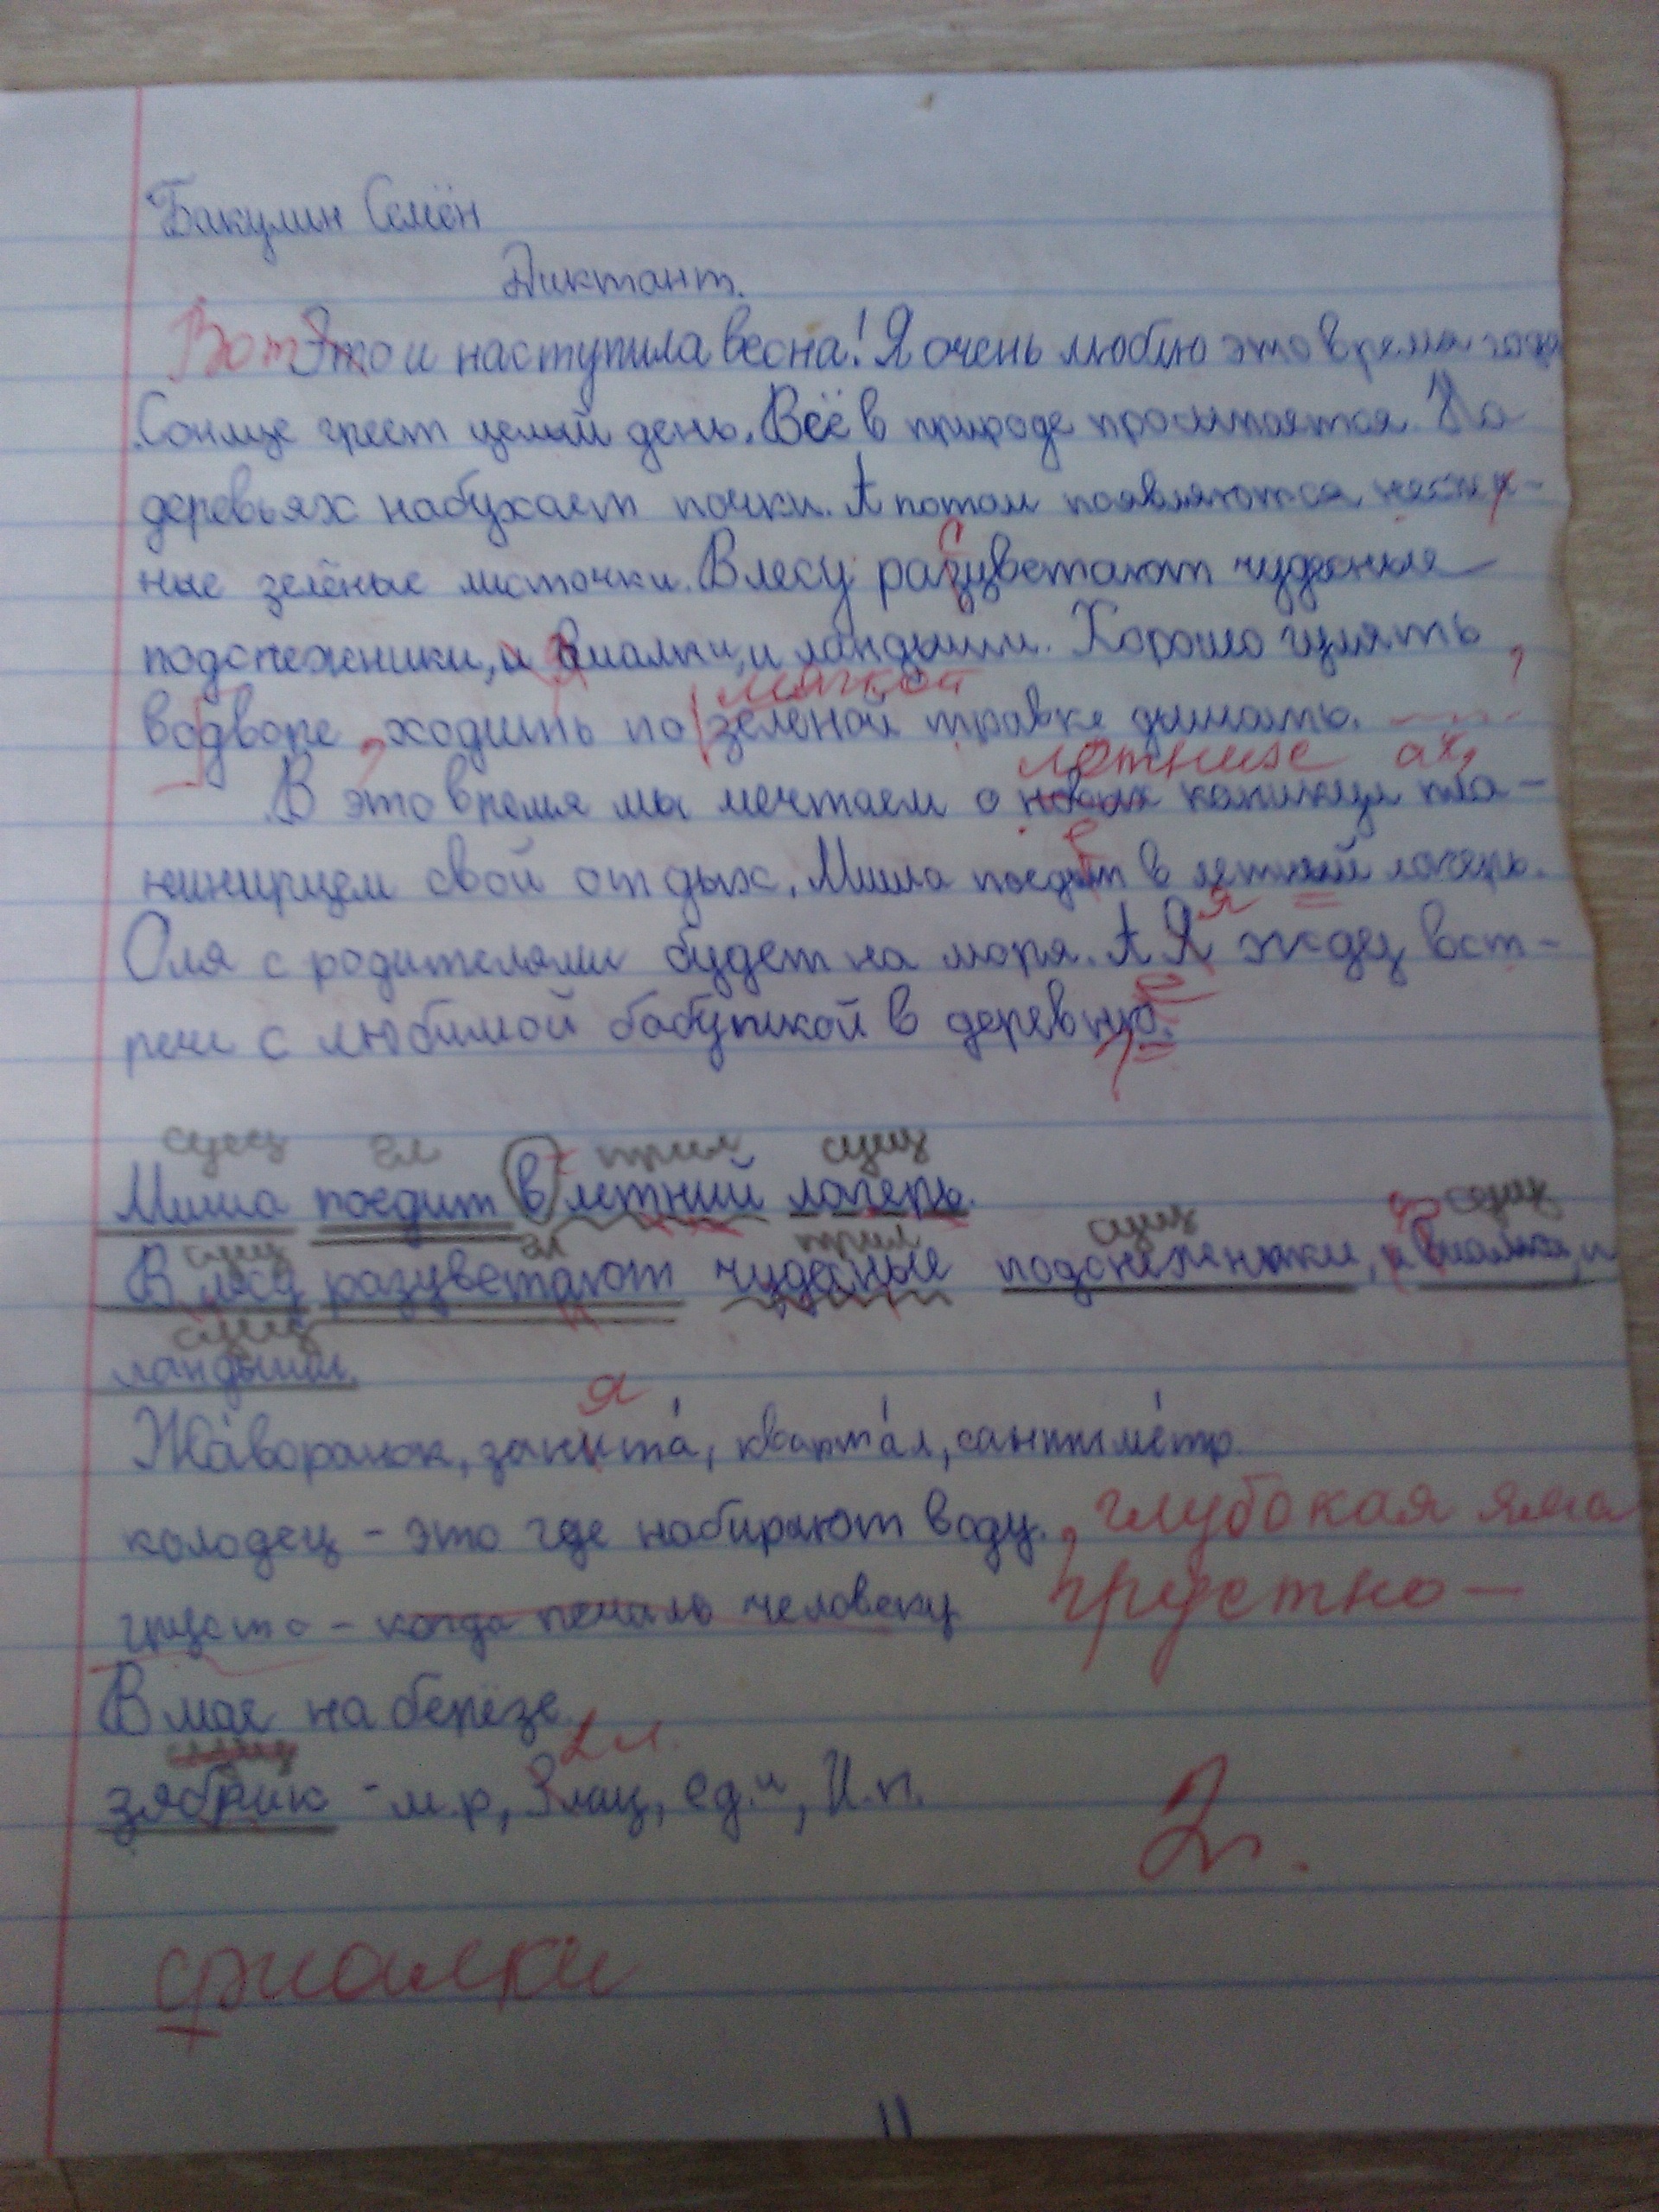 Бакулин Семён
Диктант.
Вот Это и наступила весна! Я очень люблю это время года
Сонце греет целый день. Всё в природе просыпается. На
деревьях набухает почки. А потом появляются
ные зелёные листочки. В лесу разуветают с чудесные
подснежники, и виалки, и ландыши. Хорошо гулять
водворе, ходить по мягкой зеленой травке дышать.
В это время мы мечтаем о новых летних каникул ах, пла-
нинируем свой отдых. Миша поедит е в летний лагерь.
Оля с родителями будет на моря. А Я я жду вст-
речи с любимой бабушкой в деревню. е
сущ гл прил сущ
Миша поедит в летний лагерь.
сущ гл прил сущ сущ
В лесу разуветают чудесные подснеженики, и виалки, и
сущ
ландыши.
Жа́воранок, заните́та я, кварта́л, сантиме́тр
колодец - это где набирают воду. глубокая яма
грусто - когда печаль человеку грустно —
В мае на берёзе
сущ
зяблик - м.р, 3 лиц, 2 л. ед.ч, И.п.
2.
фиалки